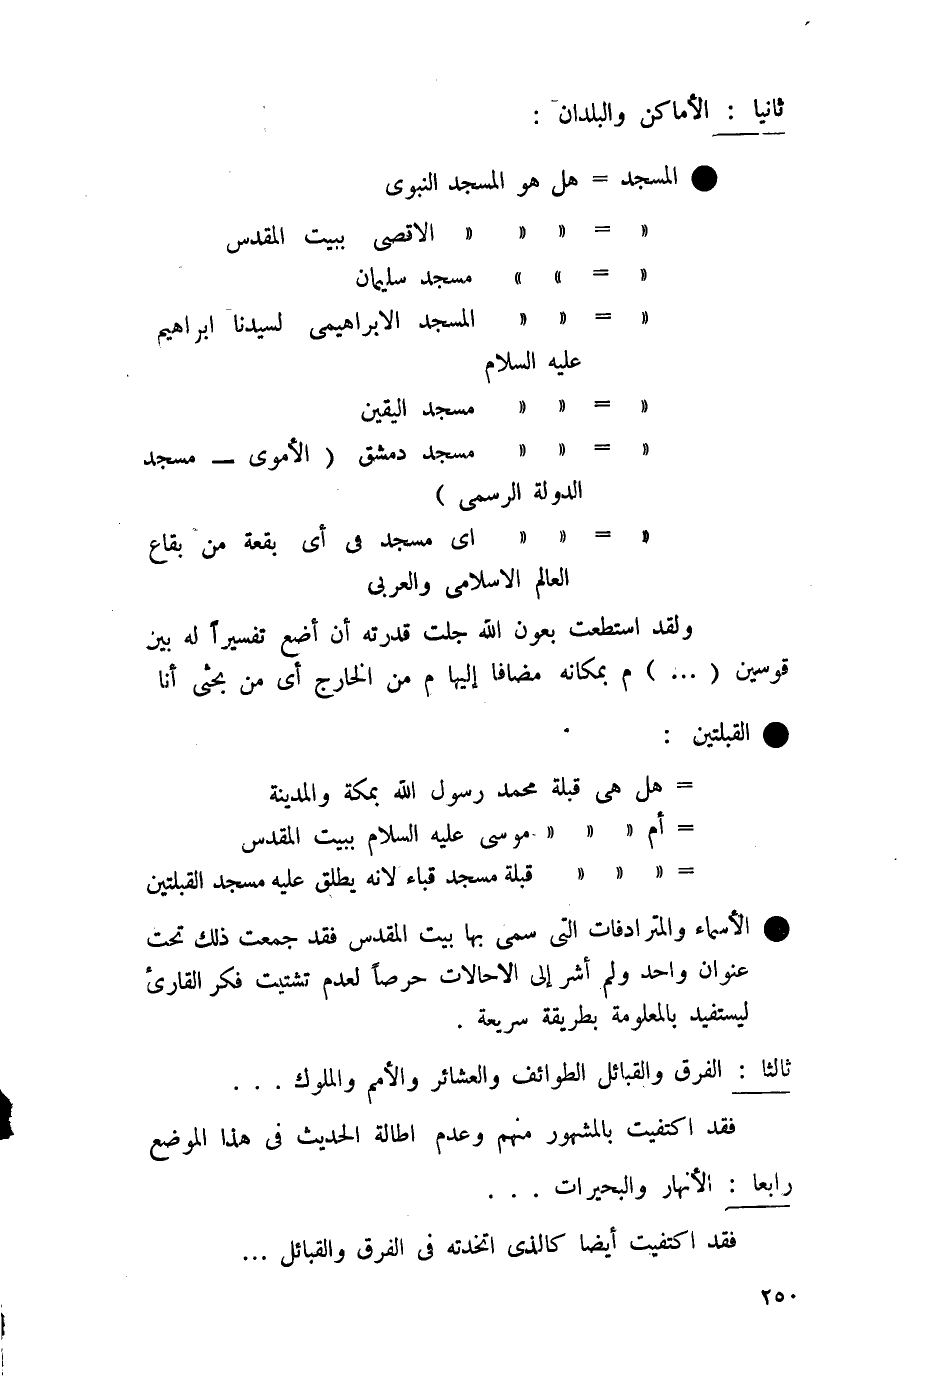 ثانيا : الأماكن والبلدان :
● المسجد = هل هو المسجد النبوى
» = » » » الاقصى ببيت المقدس
» = » » مسجد سليمان
» = » » المسجد الابراهيمى لسيدنا ابراهيم
عليه السلام
» = » » مسجد اليقين
» = » » مسجد دمشق ( الأموى ــ مسجد
الدولة الرسمى )
» = » » اى مسجد فى أى بقعة من بقاع
العالم الاسلامى والعربى
ولقد استطعت بعون الله جلت قدرته أن أضع تفسيراً له بين
قوسين ( ... ) م بمكانه مضافا إليها م من الخارج أى من بحثى أنا
● القبلتين :
= هل هى قبلة محمد رسول الله بمكة والمدينة
= أم » » » موسى عليه السلام ببيت المقدس
= » » » قبلة مسجد قباء لانه يطلق عليه مسجد القبلتين
● الأسماء والمترادفات التى سمى بها بيت المقدس فقد جمعت ذلك تحت
عنوان واحد ولم أشر إلى الاحالات حرصاً لعدم تشتيت فكر القارئ
ليستفيد بالمعلومة بطريقة سريعة .
ثالثا : الفرق والقبائل الطوائف والعشائر والأمم والملوك . . .
فقد اكتفيت بالمشهور منهم وعدم اطالة الحديث فى هذا الموضع
رابعا : الأنهار والبحيرات . . .
فقد اكتفيت أيضا كالذى اتخذته فى الفرق والقبائل ...
٢٥٠